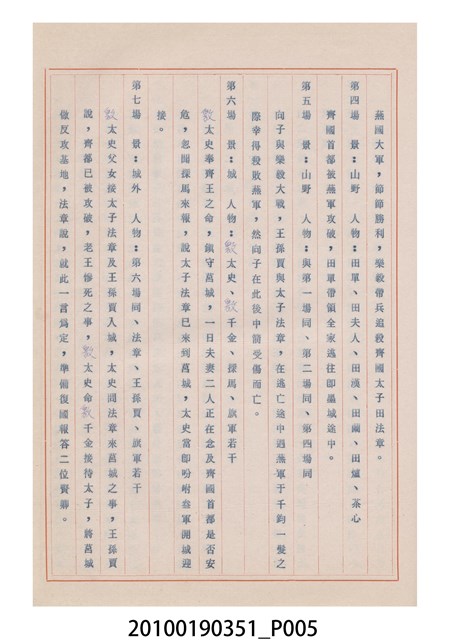 燕國大軍，節節勝利，樂毅帶兵追殺齊國太子田法章。
第四場　景：山野　人物：田單、田夫人、田漢、田繭、田爐、茶心
齊國首都被燕軍攻破，田單帶領全家逃往即墨城途中。
第五場　景：山野　人物：與第一場同、第二場同、第四場同
向子與樂毅大戰，王孫賈與太子法章，在逃亡途中遇燕軍于千鈞一髮之
際幸得殺敗燕軍，然向子在此役中箭受傷而亡。
第六場　景：城　人物：敫太史、敫千金、探馬、旗軍若干
敫太史奉齊王之命，鎮守莒城，一日夫妻二人正在念及齊國首都是否安
危，忽聞探馬來報，說太子法章已來到莒城，太史當即吩咐叁軍開城迎
接。
第七場　景：城外　人物：第六場同、法章、王孫賈、旗軍若干
敫太史父女接太子法章及王孫賈入城，太史問法章來莒城之事，王孫賈
說，齊都已被攻破，老王慘死之事，敫太史命敫千金接待太子，將莒城
做反攻基地，法章說，就此一言為定，準備復國報答二位賢卿。
20100190351_P005